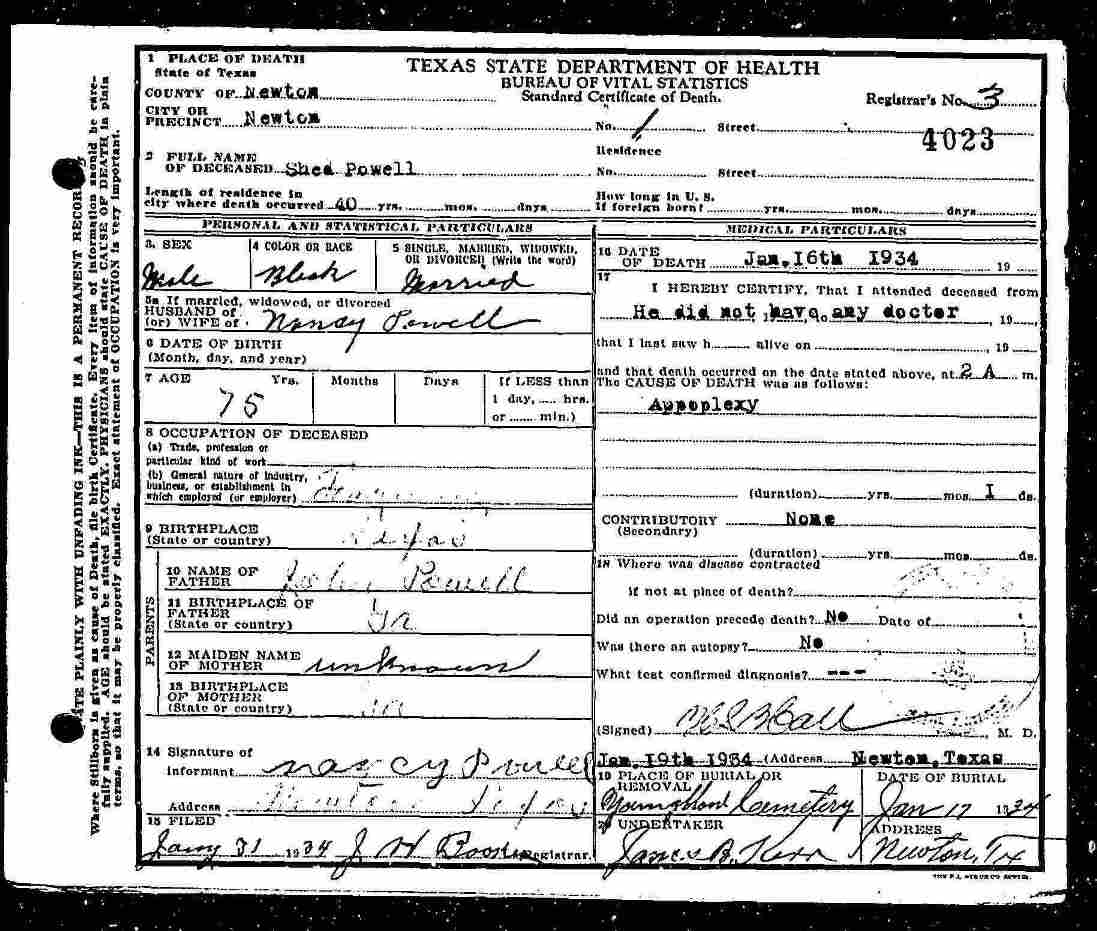 TEXAS STATE DEPARTMENT OF HEALTH
BUREAU OF VITAL STATISTICS
Standard Certificate of Death.
1 PLACE OF DEATH
State of Texas
COUNTY OF Newton
CITY OR
PRECINCT Newton
Registrar's No. 3
4023
No. 1 Street
2 FULL NAME
OF DECEASED Shed Powell
Residence
No. Street
Length of residence in
city where death occurred 40 yrs. mos. days
How long in U. S.
If foreign born? yrs. mos. days
PERSONAL AND STATISTICAL PARTICULARS
3. SEX
Male
4 COLOR OR RACE
Black
5 SINGLE, MARRIED, WIDOWED,
OR DIVORCED (Write the word)
Married
5a If married, widowed, or divorced
HUSBAND of
(or) WIFE of Nancy Powell
6 DATE OF BIRTH
(Month, day, and year)
7 AGE Yrs. Months Days If LESS than
1 day, hrs.
or min.)
75
8 OCCUPATION OF DECEASED
(a) Trade, profession or
particular kind of work
(b) General nature of industry,
business, or establishment in
which employed (or employer)
9 BIRTHPLACE
(State or country) Texas
PARENTS
10 NAME OF
FATHER Powell
11 BIRTHPLACE OF
FATHER
(State or country) Ga
12 MAIDEN NAME
OF MOTHER unknown
13 BIRTHPLACE
OF MOTHER
(State or country)
14 Signature of
informant Nancy Powell
Address Newton Texas
15 FILED
Jany 31 1934 J H Registrar.
MEDICAL PARTICULARS
16 DATE
OF DEATH Jan, 16th 1934 19
17
I HEREBY CERTIFY, That I attended deceased from
He did not have any doctor , 19
that I last saw h alive on , 19
and that death occurred on the date stated above, at 2 A m.
The CAUSE OF DEATH was as follows:
Appoplexy
(duration) yrs. mos. I ds.
CONTRIBUTORY None
(Secondary)
(duration) yrs. mos. ds.
18 Where was disease contracted
if not at place of death?
Did an operation precede death? No Date of
Was there an autopsy? No
What test confirmed diagnosis? ---
(Signed) Hall M. D.
Jan, 19th 1934 (Address Newton, Texas
19 PLACE OF BURIAL OR
REMOVAL
Youngblood Cemetery
DATE OF BURIAL
Jan 17 1934
20 UNDERTAKER
James B. Kerr
ADDRESS
Newton, Tx
WRITE PLAINLY WITH UNFADING INK—THIS IS A PERMANENT RECORD
Where Stillborn is given as cause of Death, file birth Certificate. Every item of information should be care-
fully supplied. AGE should be stated EXACTLY. PHYSICIANS should state CAUSE OF DEATH in plain
terms, so that it may be properly classified. Exact statement of OCCUPATION is very important.